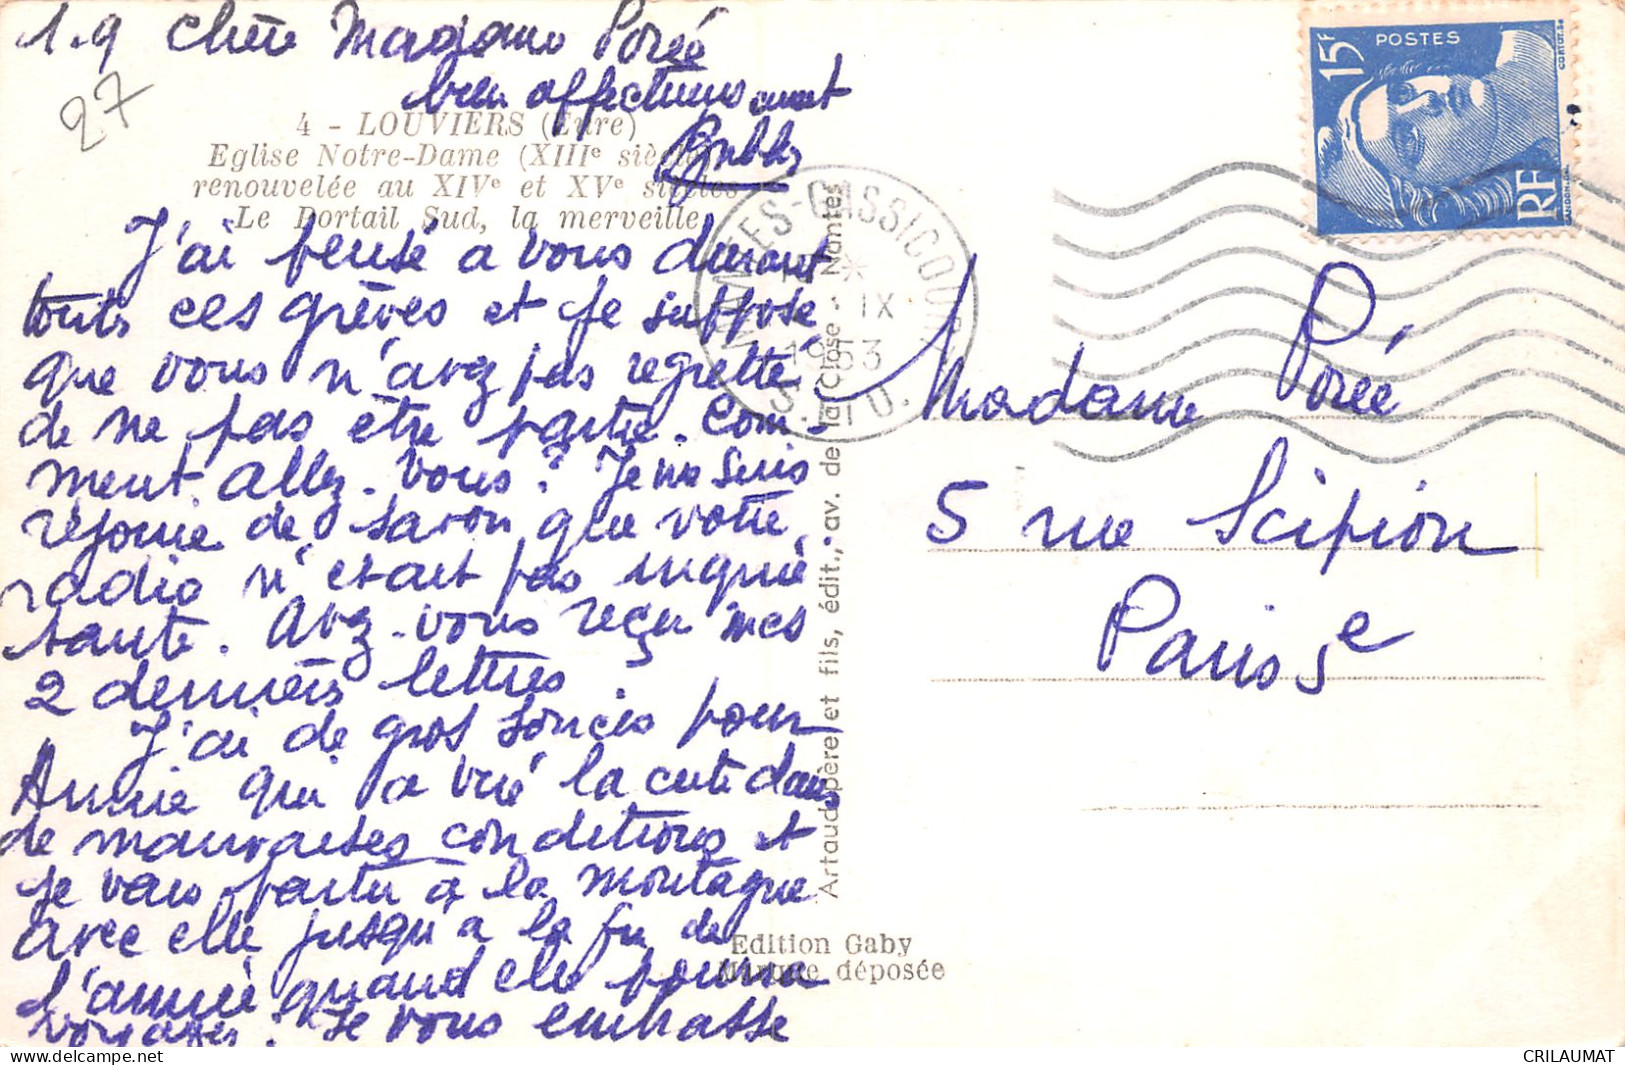 1-9 Chère Madame Porée
bien affectueusement
27
4 - LOUVIERS (Eure)
Eglise Notre-Dame (XIIIe siècle)
renouvelée au XIVe et XVe siècles
Le Portail Sud, la merveille
J'ai pensé à vous durant
toutes ces grèves et je suppose
que vous n'avez pas regretté
de ne pas être partie. Com-
ment allez-vous? Je me suis
réjouie de savoir que votre
radio n'était pas inquié
tante. Avez-vous reçu mes
2 dernières lettres
J'ai de gros soucis pour
Annie qui a viré la cuti dans
de mauvaises conditions et
je vais partir à la montagne
avec elle jusqu'à la fin de
l'année quand elle pourra
voyager. Je vous embrasse
Artaud père et fils, édit., av. de la Close - Nantes
Edition Gaby
Marque déposée
MANTES-GASSICOURT
* IX
1953
S.-ET-O.
15F POSTES
RF
Madame Porée
5 rue Scipion
Paris 5e
CRILAUMAT